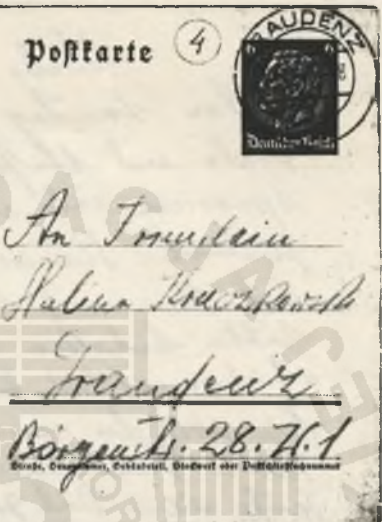 Postkarte
4
GRAUDENZ
6 6
Deutsches Reich
An Fräulein
Halina
Graudenz
28. W. 1
Straße, Hausnummer, Gebäudeteil, Stockwerk oder Postschließfachnummer